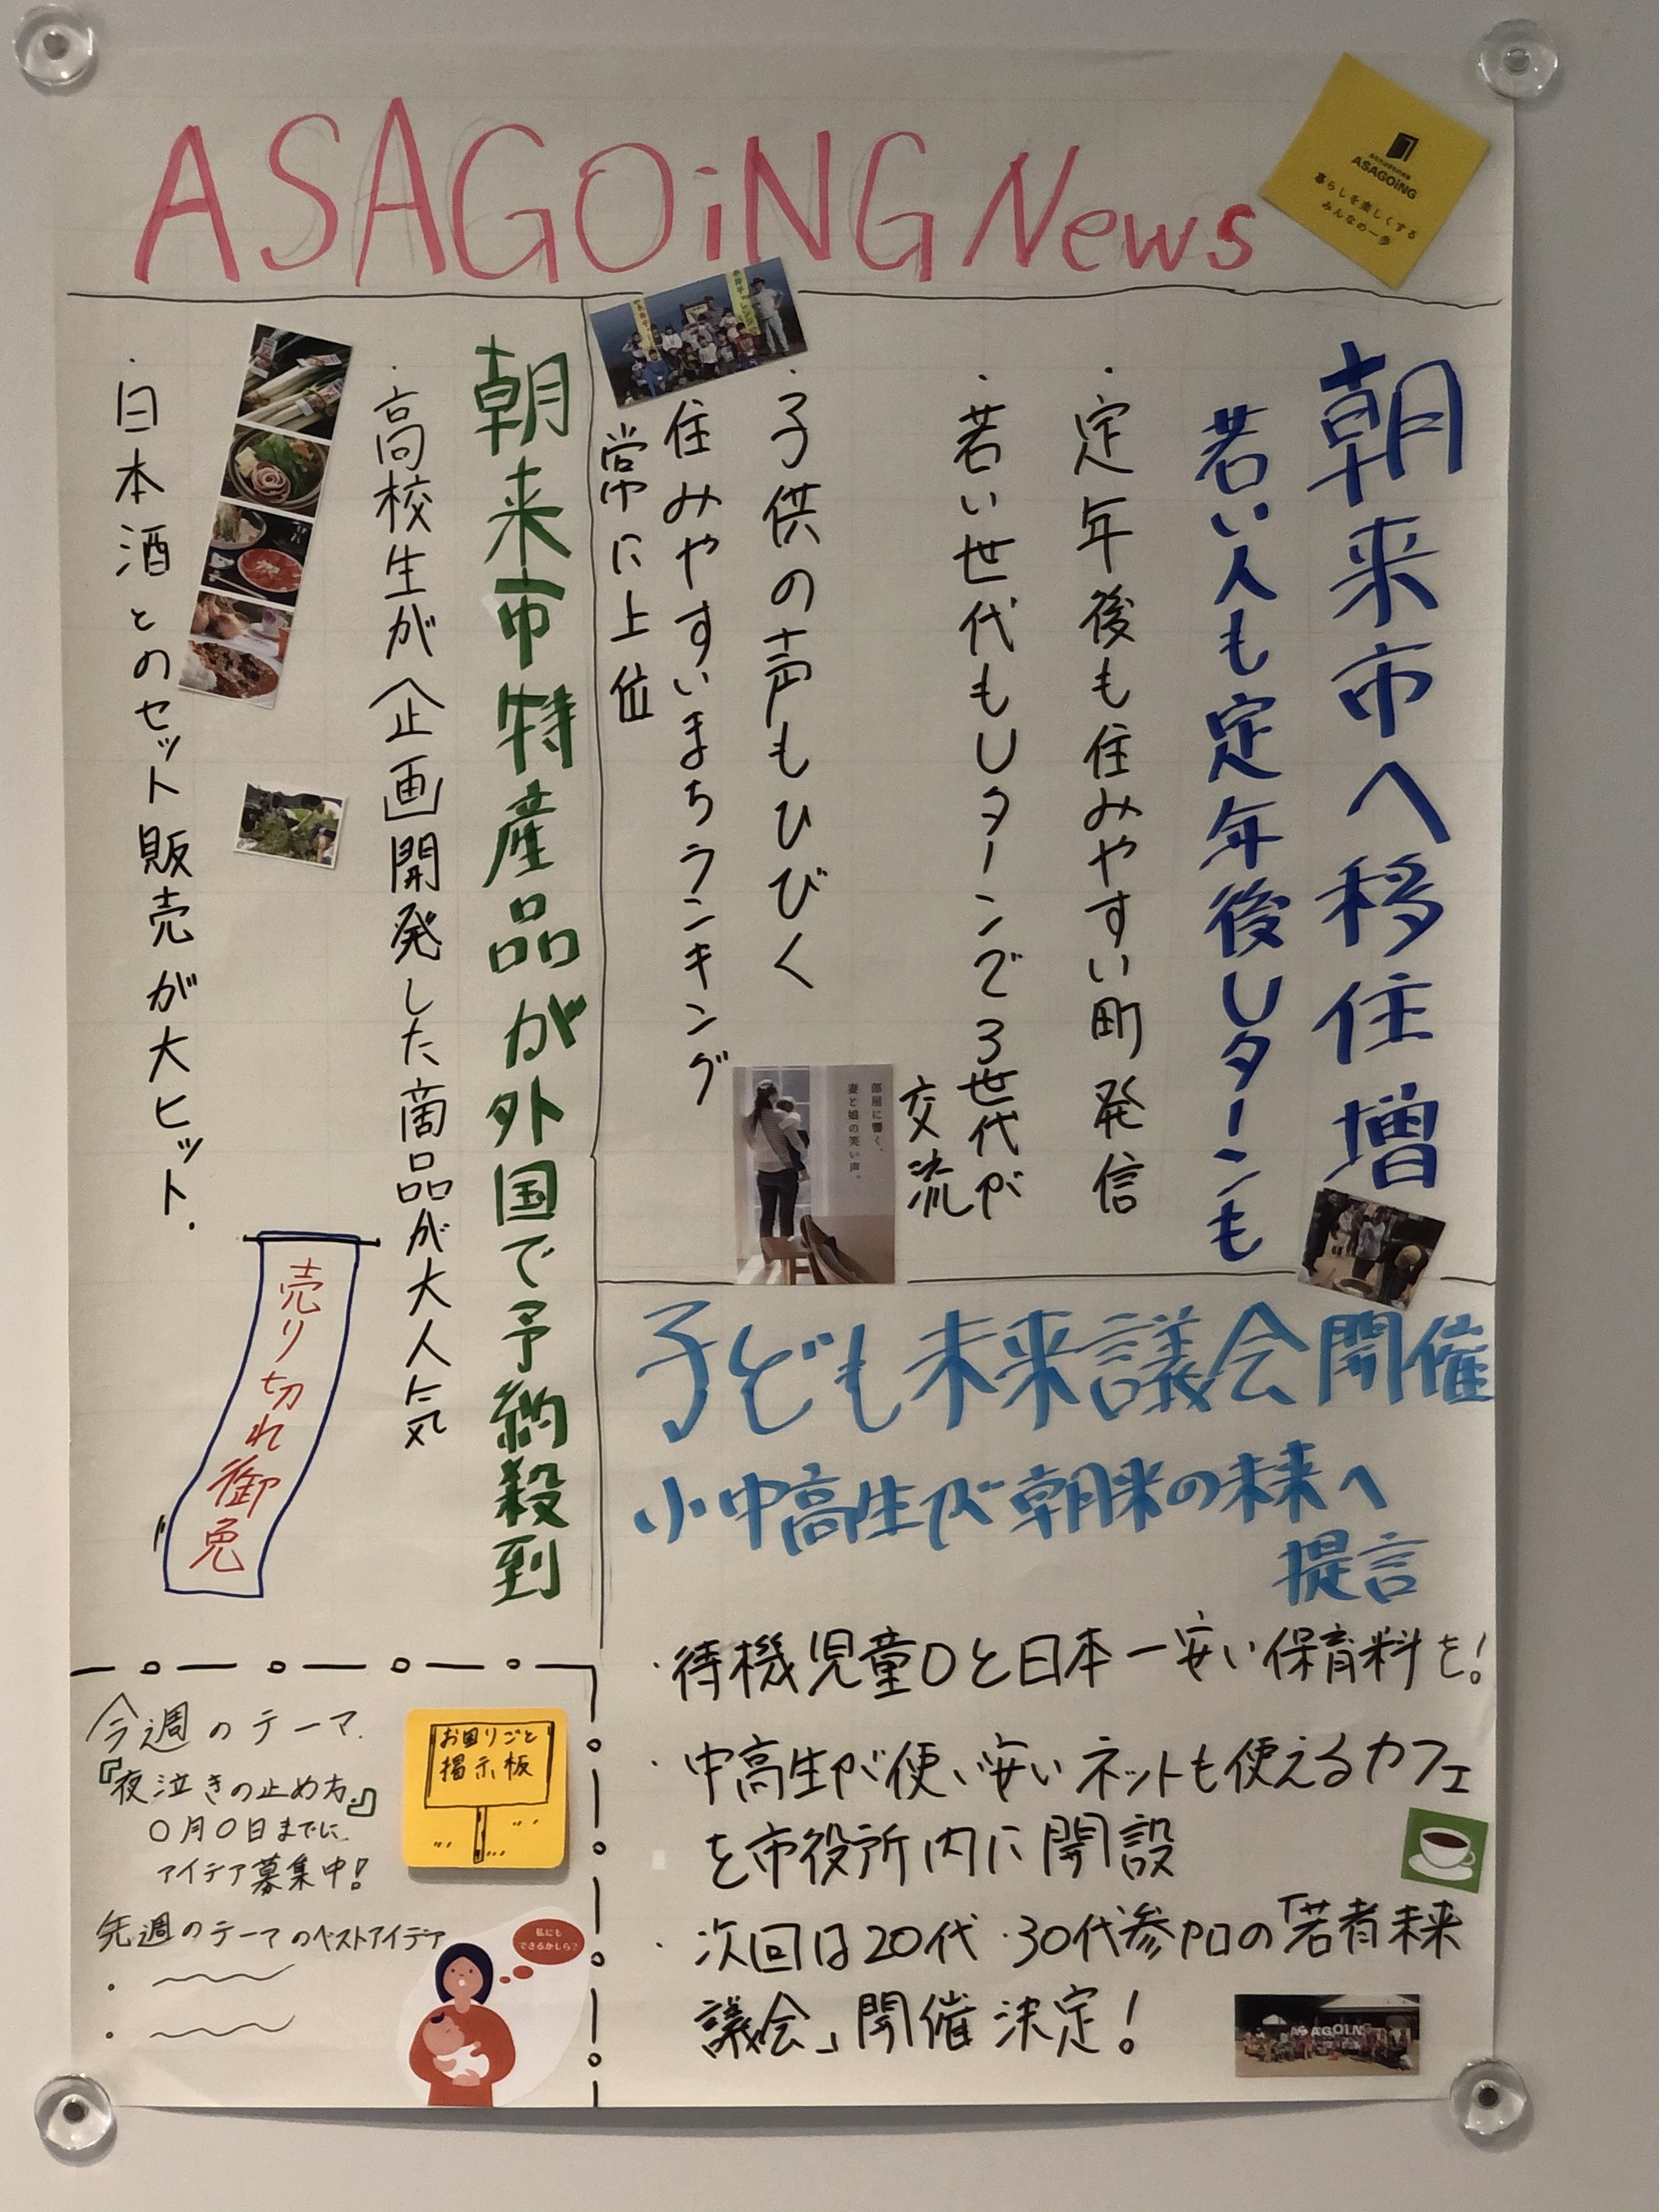 ASAGOiNG News
ASAGOiNG
暮らしを楽しくする
みんなの一歩
朝来市へ移住増
若い人も定年後Uターンも
・定年後も住みやすい町発信
・若い世代もUターンで3世代が
交流
・子供の声もひびく
住みやすいまちランキング
常に上位
部屋に響く、
妻と娘の笑い声。
朝来市特産品が外国で予約殺到
・高校生が企画開発した商品が大人気
・日本酒とのセット販売が大ヒット.
売り切れ御免
子ども未来議会開催
小中高生が朝来の未来へ
提言
・待機児童0と日本一安い保育料を!
・中高生が使い安いネットも使えるカフェ
を市役所内に開設
・次回は20代・30代参加の「若者未来
議会」開催決定!
ASAGOiNG
今週のテーマ.
『夜泣きの止め方』
〇月〇日までに
アイデア募集中!
お困りごと
掲示板
先週のテーマのベストアイデア
・
・
私にも
できるかしら?